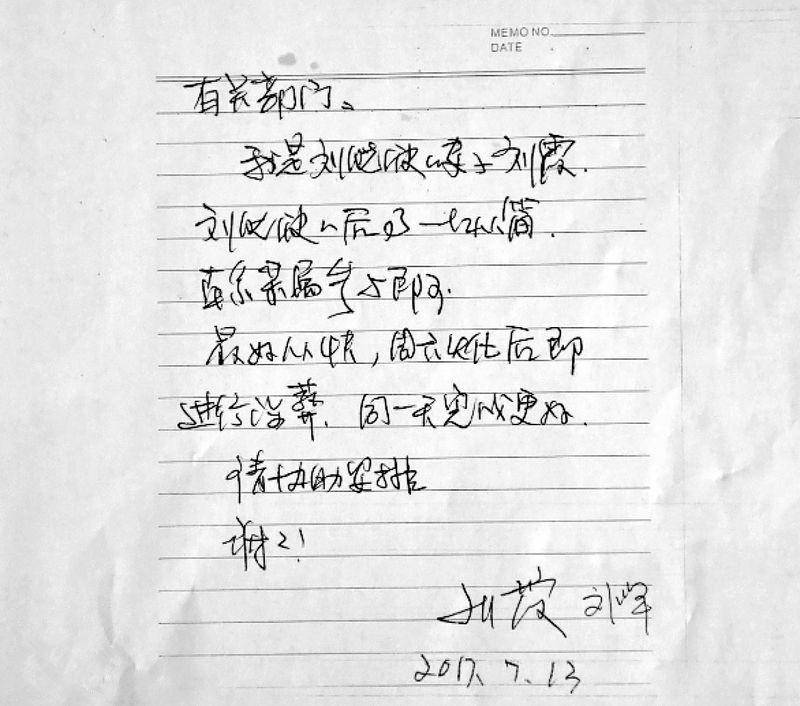 MEMO NO.
DATE
有关部门。
我是刘晓波的妻子刘霞.
刘晓波的后事一切从简.
直系亲属参与即可.
最好从快，周六火化后即
进行海葬.同一天完成更好.
请协助安排
谢谢!
刘霞 刘晖
2017.7.13